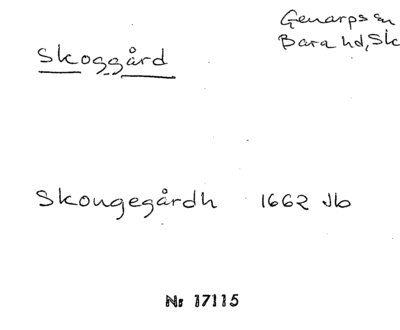 Genarps sn
Bara hd, Sk
Skoggård
Skougegårdh 1662 Jb
Nr 17115